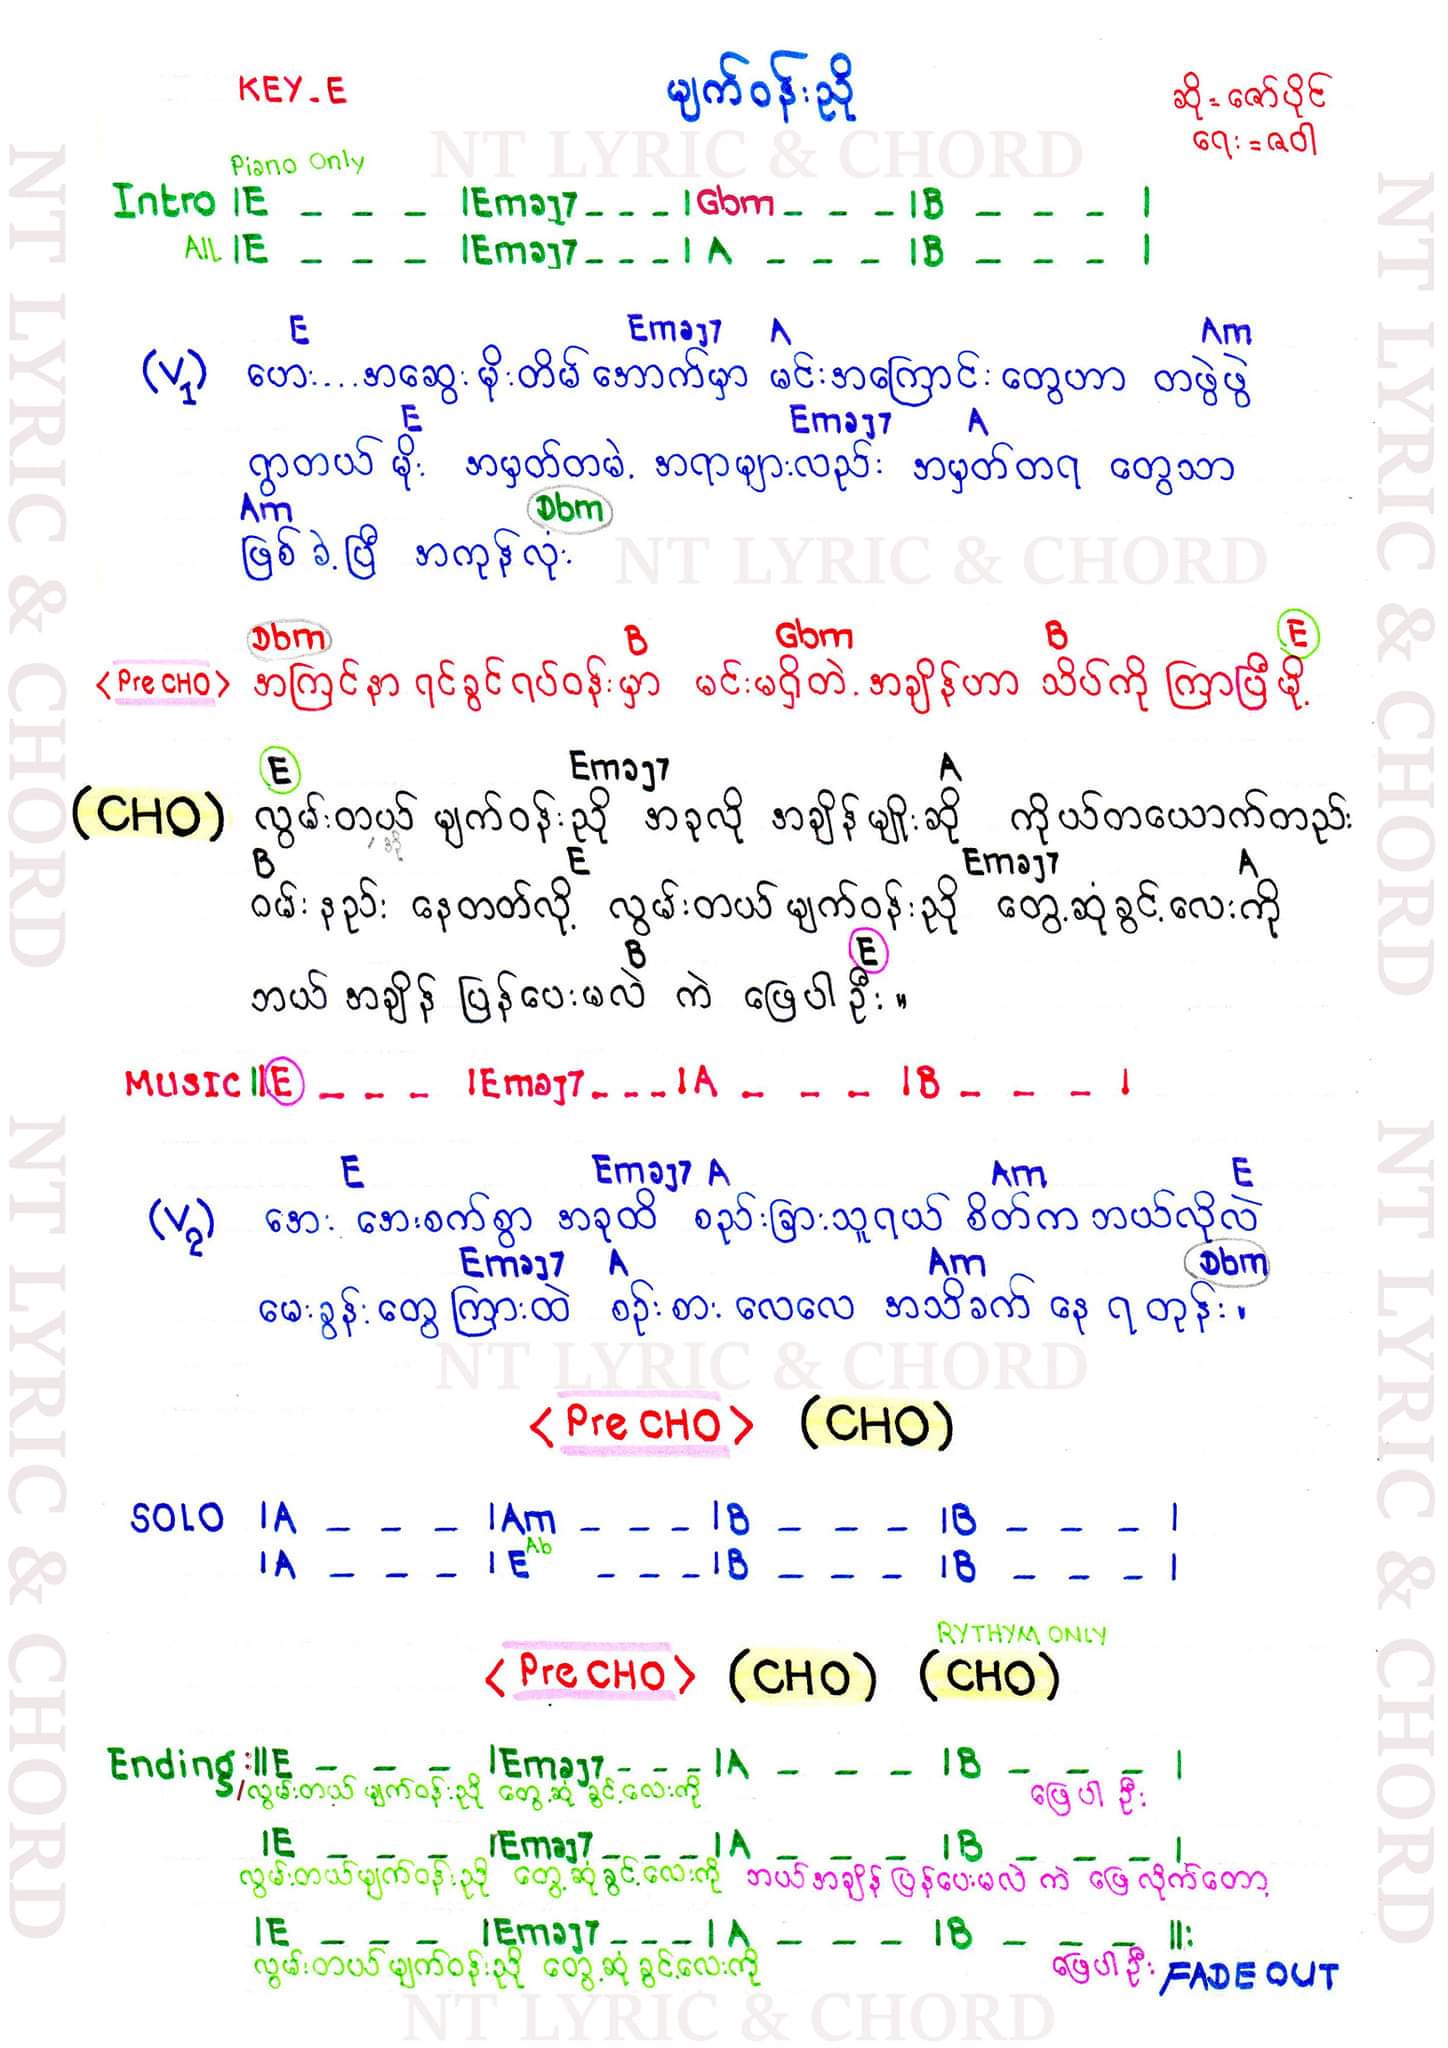 KEY - E
မျက်ဝန်းညို
ဆို = ဇော်ပိုင်
ရေး = ဇဝါ
NT LYRIC & CHORD
Piano Only
Intro |E _ _ _ |Emaj7 _ _ _ |Gbm _ _ _ |B _ _ _ |
All |E _ _ _ |Emaj7 _ _ _ | A _ _ _ |B _ _ _ |
E Emaj7 A Am
(V1) ဟေး...အဆွေးမိုးတိမ်အောက်မှာ မင်းအကြောင်းတွေဟာ တဖွဲဖွဲ
E Emaj7 A
ရွာတယ်မိုး အမှတ်တမဲ့ အရာများလည်း အမှတ်တရ တွေသာ
Am Dbm
ဖြစ်ခဲ့ပြီ အကုန်လုံး
NT LYRIC & CHORD
Dbm B Gbm B E
<Pre CHO> အကြင်နာ ရင်ခွင်ရပ်ဝန်းမှာ မင်းမရှိတဲ့အချိန်ဟာ သိပ်ကို ကြာပြီမို့
E Emaj7 A
(CHO) လွမ်းတယ် မျက်ဝန်းညို အခုလို အချိန်မျိုးဆို ကိုယ်တယောက်တည်း
B E Emaj7 A
ဝမ်းနည်း နေတတ်လို့ လွမ်းတယ်မျက်ဝန်းညို တွေ့ဆုံခွင့်လေးကို
B E
ဘယ်အချိန် ပြန်ပေးမလဲ ကဲ ဖြေပါဦး။
MUSIC ||E _ _ _ |Emaj7 _ _ _ |A _ _ _ |B _ _ _ |
E Emaj7 A Am E
(V2) အေး အေးစက်စွာ အခုထိ စည်းခြားသူရယ် စိတ်က ဘယ်လိုလဲ
Emaj7 A Am Dbm
မေးခွန်းတွေ ကြားထဲ စဉ်းစား လေလေ အသိခက် နေ ရ တုန်း။
NT LYRIC & CHORD
<Pre CHO> (CHO)
SOLO |A _ _ _ |Am _ _ _ |B _ _ _ |B _ _ _ |
|A _ _ _ |E Ab _ _ _ |B _ _ _ |B _ _ _ |
RYTHYM ONLY
<Pre CHO> (CHO) (CHO)
Ending :||E _ _ _ |Emaj7 _ _ _ |A _ _ _ |B _ _ _ |
လွမ်းတယ် မျက်ဝန်းညို တွေ့ဆုံ ခွင့်လေးကို ဖြေပါ ဦး
|E _ _ _ |Emaj7 _ _ _ |A _ _ _ |B _ _ _ |
လွမ်းတယ်မျက်ဝန်းညို တွေ့ဆုံခွင့်လေးကို ဘယ်အချိန် ပြန်ပေးမလဲ ကဲ ဖြေလိုက်တော့
|E _ _ _ |Emaj7 _ _ _ | A _ _ _ |B _ _ _ ||:
လွမ်းတယ်မျက်ဝန်းညို တွေ့ဆုံ ခွင့်လေးကို ဖြေပါဦး FADE OUT
NT LYRIC & CHORD
NT LYRIC & CHORD
NT LYRIC & CHORD
NT LYRIC & CHORD
NT LYRIC & CHORD